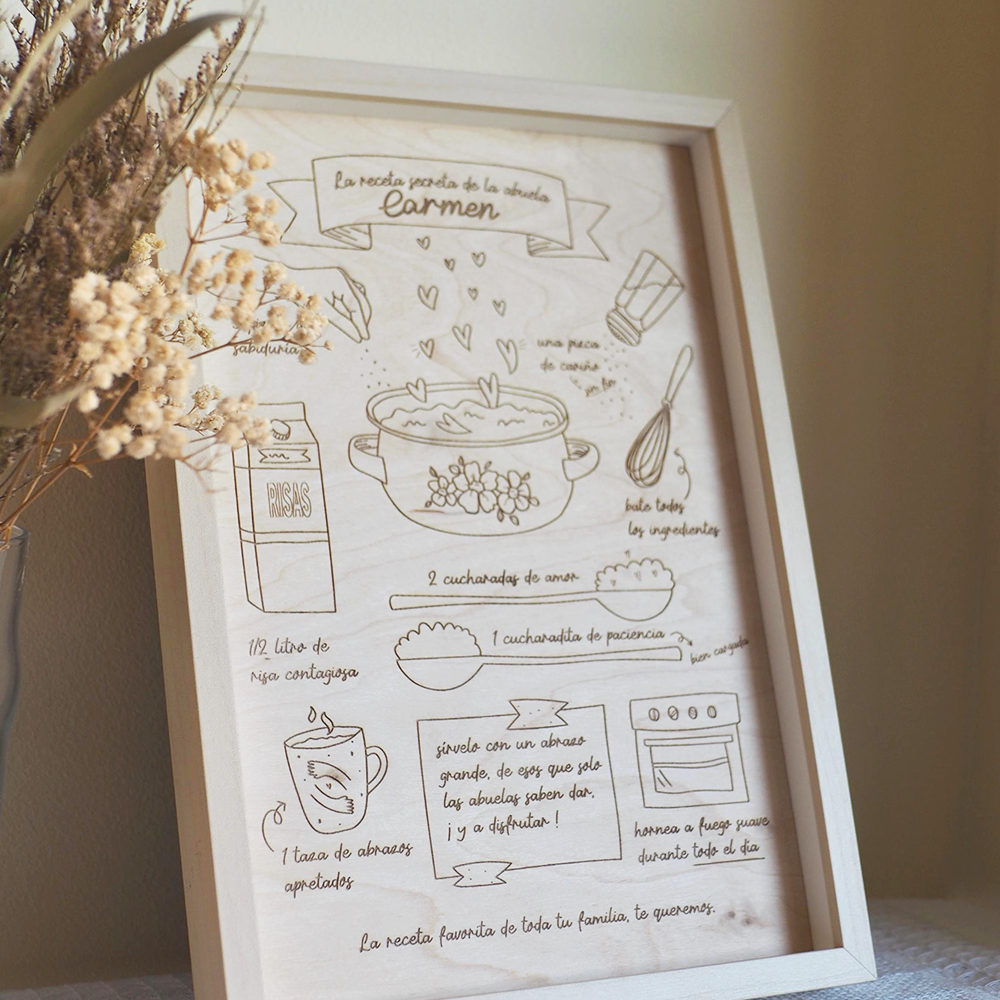 La receta secreta de la abuela
Carmen
sabiduría
una pizca
de cariño
sin fin
RISAS
bate todos
los ingredientes
2 cucharadas de amor
1 cucharadita de paciencia
bien cargada
1/2 litro de
risa contagiosa
sírvelo con un abrazo
grande, de esos que solo
las abuelas saben dar,
¡y a disfrutar!
1 taza de abrazos
apretados
hornea a fuego suave
durante todo el día
La receta favorita de toda tu familia, te queremos.